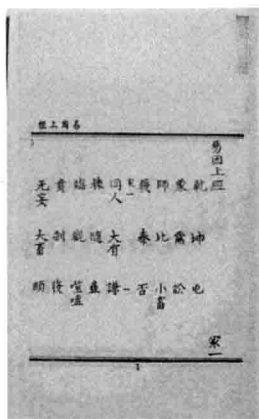 易因上經
易因上經
乾 坤 屯
蒙 需 訟
師 比 小畜
履 泰 否
同人 大有 謙
豫 隨 蠱
臨 觀 噬嗑
賁 剝 復
无妄 大畜 頤